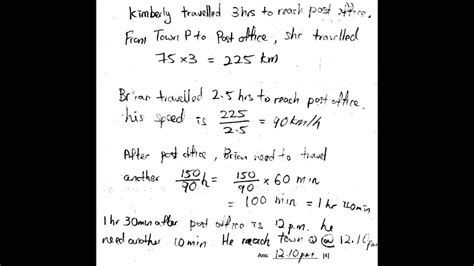 Kimberly travelled 3 hrs to reach post office.
From Town P to Post office, she travelled
75 × 3 = 225 km
Brian travelled 2.5 hrs to reach post office.
his speed is 225/2.5 = 90 km/h
After post office, Brian need to travel
another 150/90 h = 150/90 × 60 min
= 100 min = 1 hr 40 min
1 hr 30 min after post office is 12 p.m. he
need another 10 min. He reach town Q @ 12.10 pm
Ans: 12.10 p.m. [4]